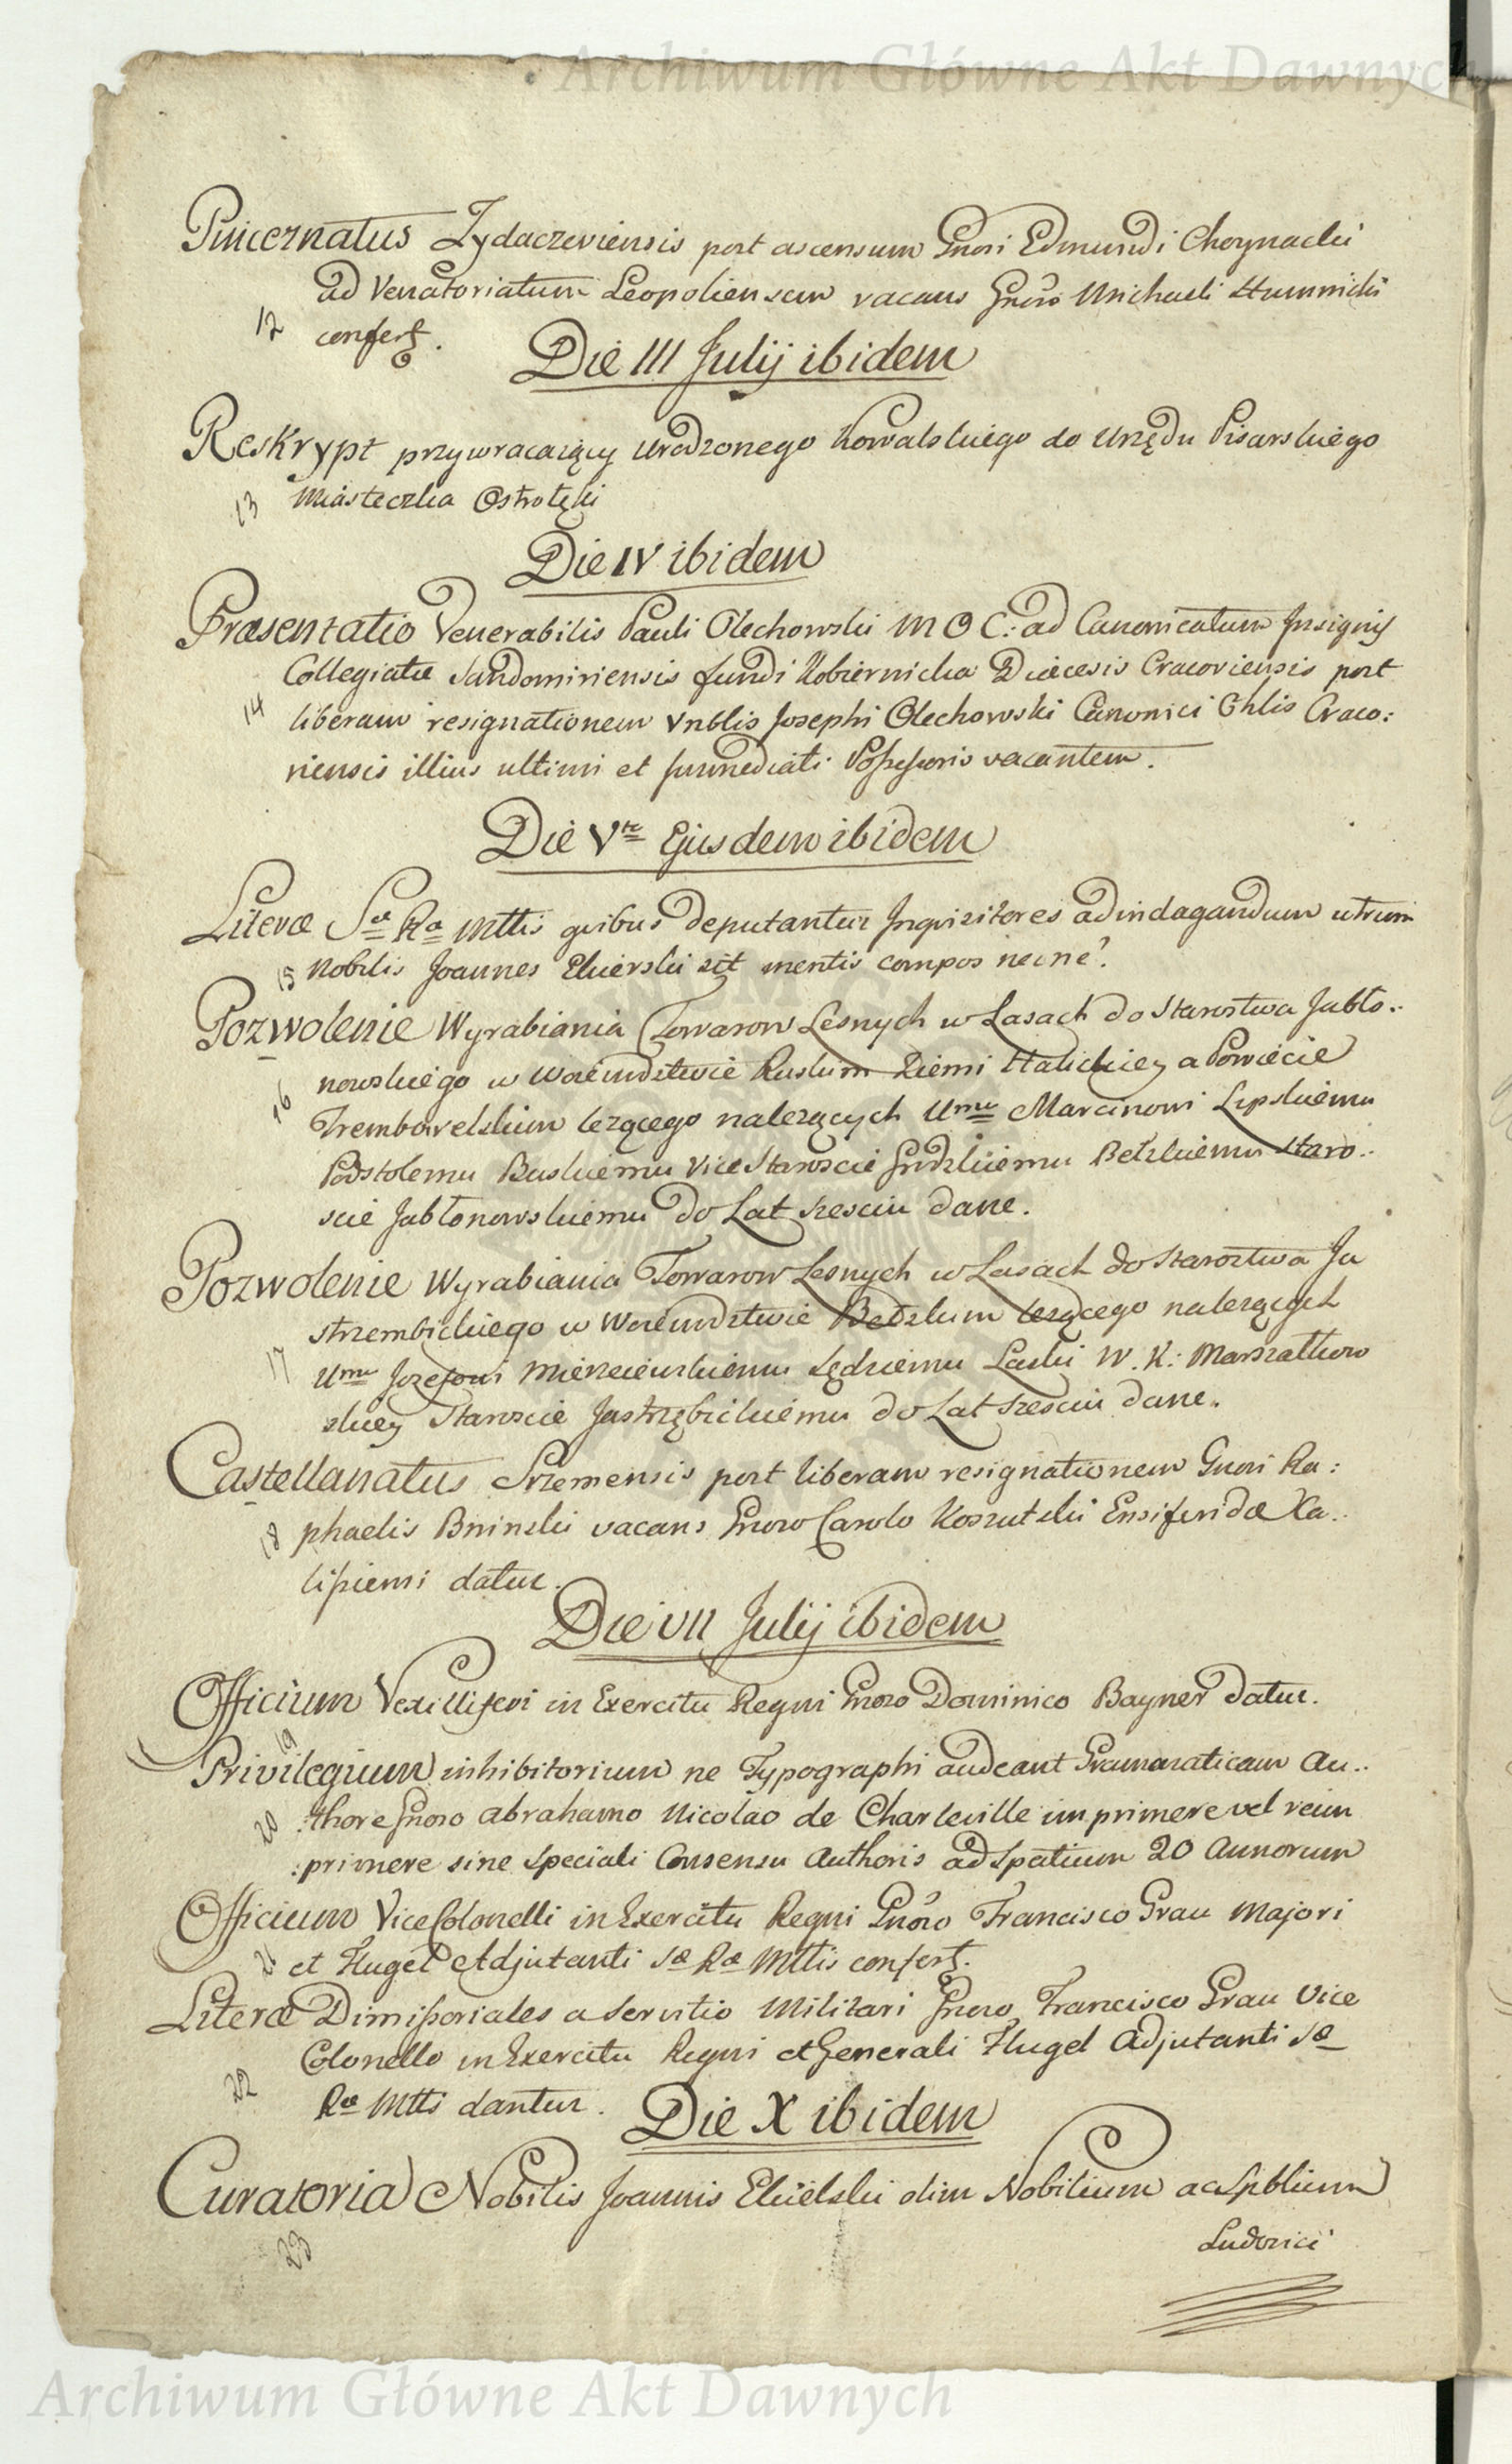 Archiwum Główne Akt Dawnych
Pincernatus Zydaczeviensis post ascensum Gnosi Edmundi Choynacki
ad Venatoriatum Leopoliensem vacans Gnoso Michaeli Humnicki
12 confert.
Die III Julij ibidem
Reskrypt przywracaiący Urodzonego Kowalskiego do Urzędu Pisarskiego
13 Miasteczka Ostrołęki
Die IV ibidem
Præsentatio Venerabilis Pauli Olechowski M O C: ad Canonicatum Insignis
Collegiatæ Sandomiriensis fundi Kobiernicka Diæcesis Cracoviensis post
14 liberam resignationem Vnblis Josephi Olechowski Canonici Cthlis Craco:
viensis illius ultimi et Immediati Possessoris vacantem.
Die Vte Ejusdem ibidem
Literæ Sæ Ræ Mttis quibus deputantur Inquisitores ad indagandum utrum
15 Nobilis Joannes Ekierski sit mentis compos necne?
Pozwolenie Wyrabiania Towarow Lesnych w Lasach do Starostwa Jabło..
nowskiego w Woiewdztwie Ruskim Ziemi Halickiey a Powiecie
16 Trembowelskim lezącego nalezących Umu Marcinowi Lipskiemu
Podstolemu Buskiemu Vice Staroscie Grdzkiemu Bełzkiemu Staro..
scie Jabłonowskiemu do Lat szesciu dane.
Pozwolenie Wyrabiania Towarow Lesnych w Lasach do Starostwa Ja
strzembickiego w Woiewdztwie Bełzkim lezącego nalezących
17 Umu Jozefowi Mierzeiewskiemu Sędziemu Laski W. K: Marszałkow
skiey Staroscie Jastrzębickiemu do Lat szesciu dane.
Castellanatus Srzemensis post liberam resignationem Gnosi Ra:
18 phaelis Bninski vacans Gnoso Carolo Koszutski Ensiferidæ Ca..
lisiensi datur.
Die VII Julij ibidem
Officium Vexilliferi in Exercitu Regni Gnoso Dominico Bayner datur.
19
Privilegium inhibitorium ne Typographi audeant Gramaticam Au..
20 :thore Gnoso Abrahamo Nicolao de Charleville imprimere vel reim
:primere sine speciali Consensu Authoris ad spatium 20 Annorum
Officium ViceColonelli in Exercitu Regni Gnoso Francisco Grau Majori
21 et Flugel Adjutanti Sæ Ræ Mttis confert.
Literæ Dimissoriales a servitio Militari Gnoso Francisco Grau Vice
Colonello in Exercitu Regni et Generali Flugel Adjutanti Sæ
22 Ræ Mtti dantur.
Die X ibidem
Curatoria Nobilis Joannis Ekielski olim Nobilium ac Spblium
23
Ludovici
Archiwum Główne Akt Dawnych